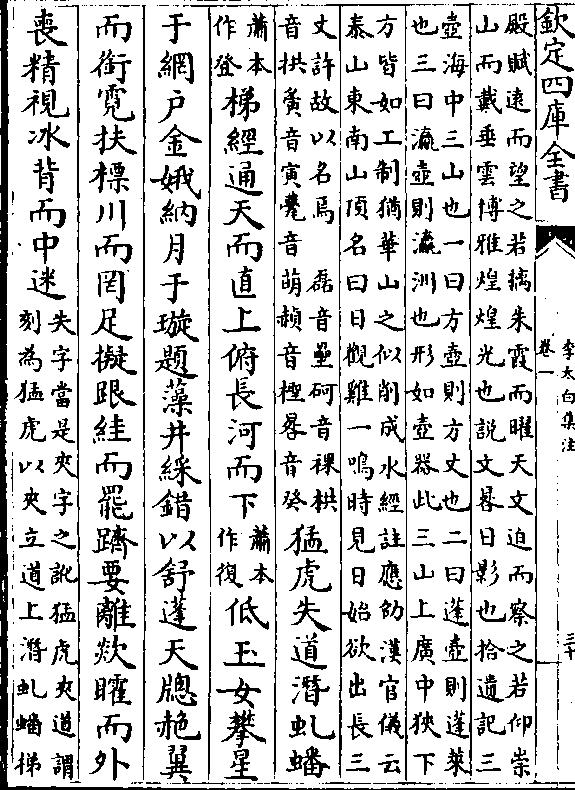 欽定四庫全書
李太白集注
卷一
三十
殿賦遠而望之若摛朱霞而曜天文迫而察之若仰崇
山而戴垂雲博雅煌煌光也説文晷日影也拾遺記三
壺海中三山也一曰方壺則方丈也二曰蓬壺則蓬萊
也三曰瀛壺則瀛洲也形如壺器此三山上廣中狹下
方皆如工制猶華山之似削成水經註應劭漢官儀云
泰山東南山頂名曰日觀雞一鳴時見日始欲出長三
丈許故以名焉 磊音壘砢音裸栱
音拱夤音寅甍音萌赬音檉晷音癸
猛虎失道潛虬蟠
蕭本
作登
梯經通天而直上俯長河而下
蕭本
作復
低玉女攀星
于網户金娥納月于璇題藻井綵錯以舒蓬天牕赩翼
而銜霓扶標川而罔足擬跟絓而罷躋要離歘矐而外
喪精視冰背而中迷
失字當是夾字之訛猛虎夾道謂
刻為猛虎以夾立道上潛虬蟠梯